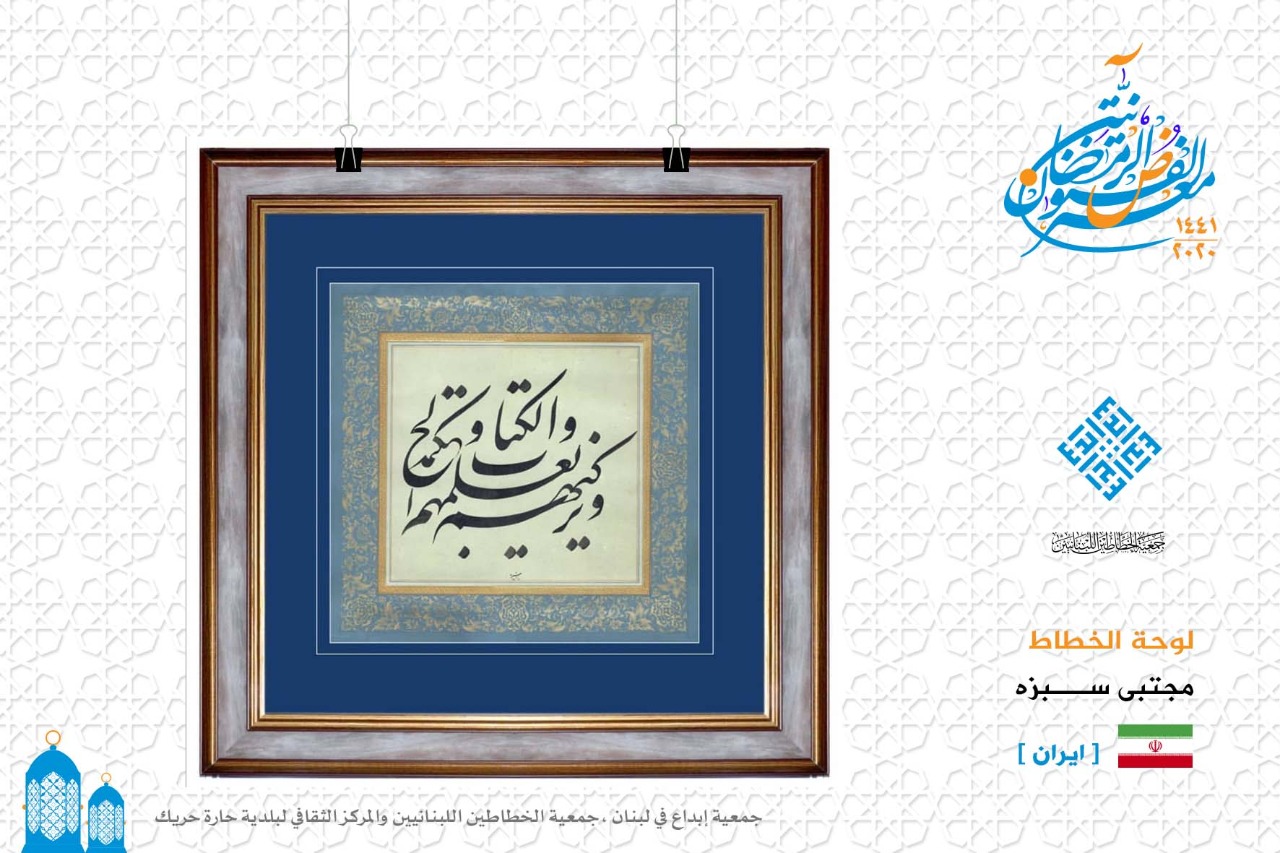 معرض الفنون الرمضانية
١٤٤١
٢٠٢٠
ويزكيهم ويعلمهم الكتاب والحكمة
جمعية الخطاطين اللبنانيين
لوحة الخطاط
مجتبى ســـــبزه
[ ايران ]
جمعية إبداع في لبنان ، جمعية الخطاطين اللبنانيين والمركز الثقافي لبلدية حارة حريك